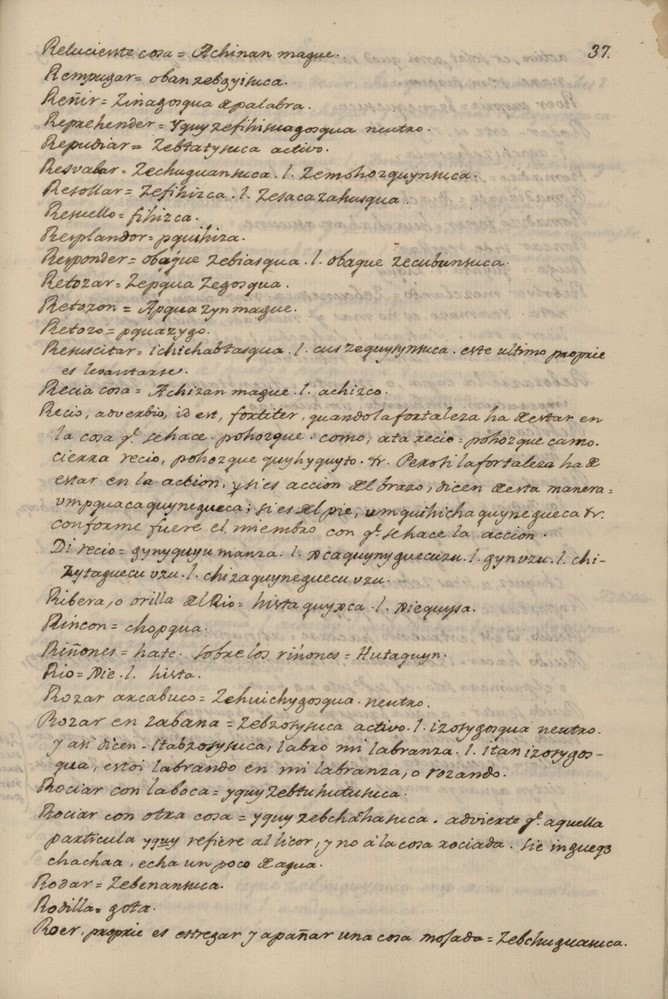 37.
Reluciente cosa = Achinan mague.
Rempujar = oban zebgyisuca.
Reñir = Zinagosqua de palabra.
Reprehender = Yquy zefihisuagosqua neutro.
Repudiar = Zebtatysuca activo.
Resvalar = Zechuguansuca . l . Zemohozquynsuca.
Resollar = Zefihizca . l . Zesacazahusqua
Resuello = fihizca.
Resplandor = pquihiza.
Responder = obaque zebiasqua . l . obaque zecubunsuca.
Retozar = Zepqua Zegosqua.
Retozon = Apquazyn mague.
Retozo = pquazygo.
Resuscitar = ichichabtasqua . l . cus zequysynsuca . este ultimo proprie
es levantarse.
Recia cosa = Achizan mague . l . achizco.
Recio, adverbio, id est, fortiter, quando la fortaleza ha de estar en
la cosa q̃. se hace . pohozque : como, ata recio = pohozque camo.
cierra recio, pohozque quyhyquyto . &r. Pero si la fortaleza ha de
estar en la action, y si es accion del brazo, dicen de esta manera =
vmpquacaquynegueca; si es del pie, umquihichaquynegueca &r.
conforme fuere el miembro con q̃. se hace la accion .
Di recio = gynyquyu manza . l . ycaquynyguecuzu . l . gynvzu . l . chi-
zytaguecu vzu . l . chizaquyneguecu vzu .
Ribera, o orilla del Rio = histaquyca . l . siequysa.
Rincon = chopqua.
Riñones = hate . sobre los riñones = Hutaquyn.
Rio = sie . l . hista.
Rozar arcabuco = Zehuichygosqua . neutro.
Rozar en zabana = Zebzosysuca activo . l . izosygosqua neutro.
Y asi dicen - Itabzosysuca, labro mi labranza . l . itan izosygos-
qua, estoi labrando en mi labranza, o rozando.
Rociar con la boca = yquy zebtuhutusuca.
Rociar con otra cosa = yquy zebchahasuca . advierte q̃. aquella
particula yquy refiere al licor, y no á la cosa rociada . sie inguegȝ
chachaa, echa un poco de agua.
Rodar = Zebenansuca.
Rodilla = gota.
Roer, proprie es estregar y apañar una cosa mojada = Zebchuguasuca.